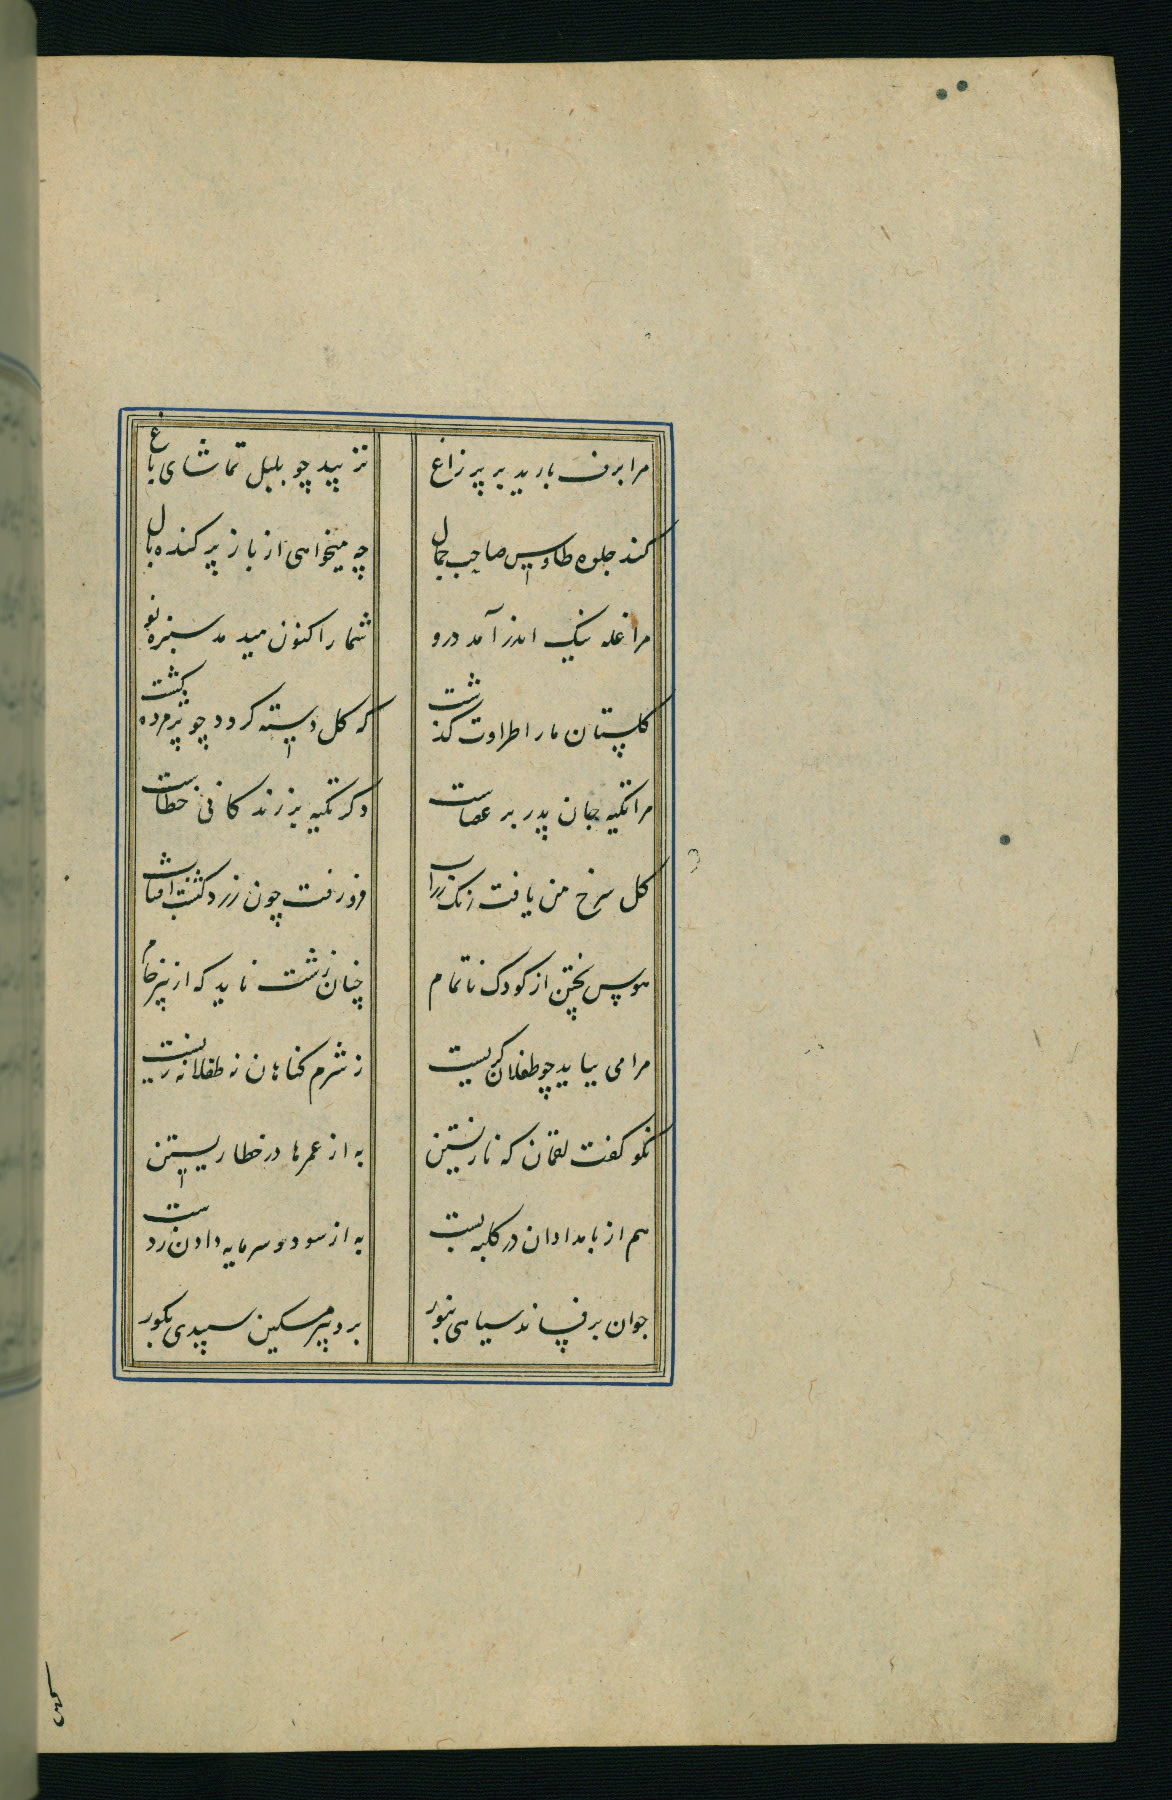 مرا برف بارید بر پر زاغ نزیبد چو بلبل تماشای باغ
کند جلوه طاوس صاحب جمال چه میخواهی از باز پر کنده بال
مرا غله نیک اندر آمد درو شما را کنون میدمد سبزه نو
کلستان ما را طراوت کذشت که کل دسته کردد چو پژمرده کشت
مرا تکیه جان پدر بر عصاست دکر تکیه بر زندکانی خطاست
کل سرخ من یافت رنک زراب فرو رفت چون زرد کشت افتاب
هوس پختن از کودک ناتمام چنان زشت ناید که از پیر خام
مرا می بباید چو طفلان کریست ز شرم کناهان نه طفلانه زیست
نکو کفت لقمان که نازیستن به از عمرها در خطا زیستن
هم از بامدادان در کلبه بست به از سود و سرمایه دادن زدست
جوان برفشاند سیاهی بنور برد پیر مسکین سپیدی بکور